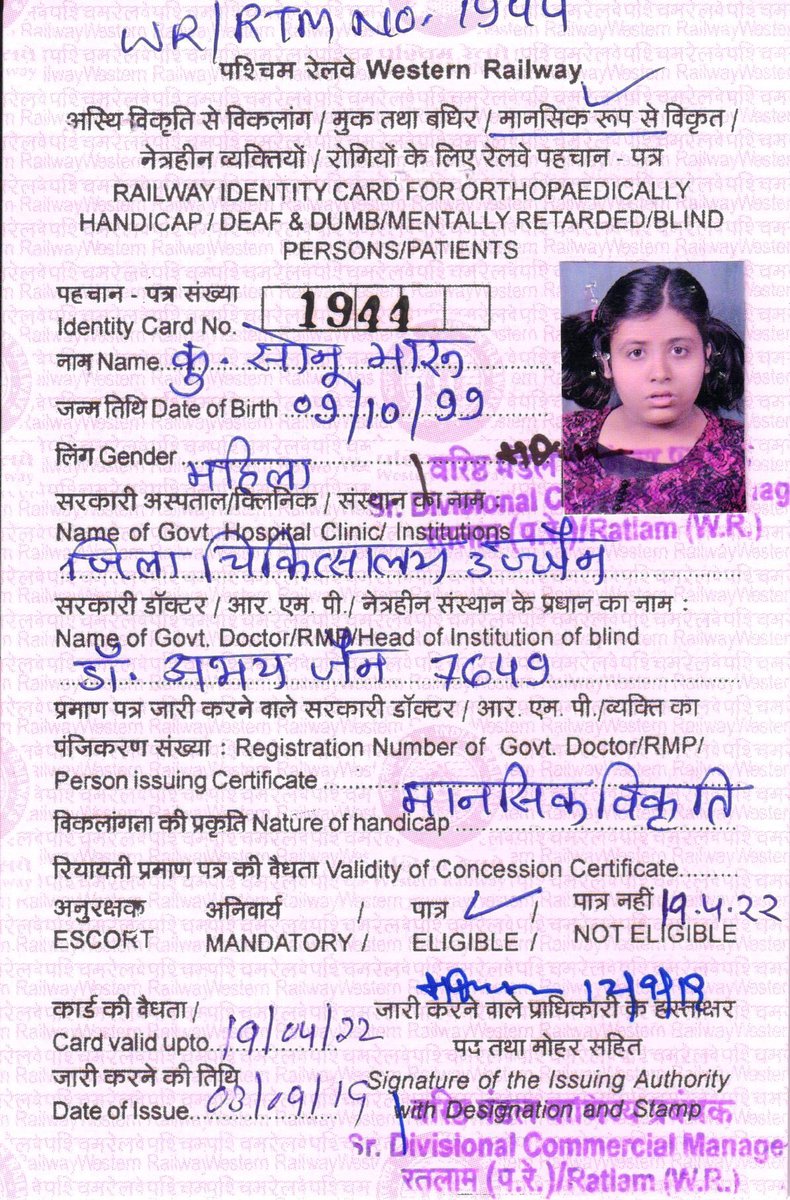 WR/RTM NO. 1944
पश्चिम रेलवे Western Railway
अस्थि विकृति से विकलांग / मुक तथा बधिर / मानसिक रूप से विकृत /
नेत्रहीन व्यक्तियों / रोगियों के लिए रेलवे पहचान - पत्र
RAILWAY IDENTITY CARD FOR ORTHOPAEDICALLY
HANDICAP / DEAF & DUMB/MENTALLY RETARDED/BLIND
PERSONS/PATIENTS
पहचान - पत्र संख्या
Identity Card No. 1944
नाम Name कु सोनू मारू
जन्म तिथि Date of Birth 09/10/99
लिंग Gender महिला
वरिष्ठ मंडल
सरकारी अस्पताल/क्लिनिक / संस्थान का नाम :
Sr. Divisional
Name of Govt. Hospital Clinic/ Institutions
रतलाम (प.रे.)/Ratlam (W.R.)
जिला चिकित्सालय उज्जैन
सरकारी डॉक्टर / आर. एम. पी./ नेत्रहीन संस्थान के प्रधान का नाम :
Name of Govt. Doctor/RMP/Head of Institution of blind
डॉ. अभय जैन 7649
प्रमाण पत्र जारी करने वाले सरकारी डॉक्टर / आर. एम. पी./व्यक्ति का
पंजिकरण संख्या : Registration Number of Govt. Doctor/RMP/
Person issuing Certificate
विकलांगता की प्रकृति Nature of handicap मानसिक विकृति
रियायती प्रमाण पत्र की वैधता Validity of Concession Certificate
19.4.22
अनुरक्षक अनिवार्य / पात्र / पात्र नहीं
ESCORT MANDATORY / ELIGIBLE / NOT ELIGIBLE
12/9/19
कार्ड की वैधता / जारी करने वाले प्राधिकारी के हस्ताक्षर
Card valid upto 19/04/22 पद तथा मोहर सहित
जारी करने की तिथि Signature of the Issuing Authority
Date of Issue 03/09/19 with Designation and Stamp
वरिष्ठ मंडल वाणिज्य प्रबंधक
Sr. Divisional Commercial Manage
रतलाम (प.रे.)/Ratlam (W.R.)